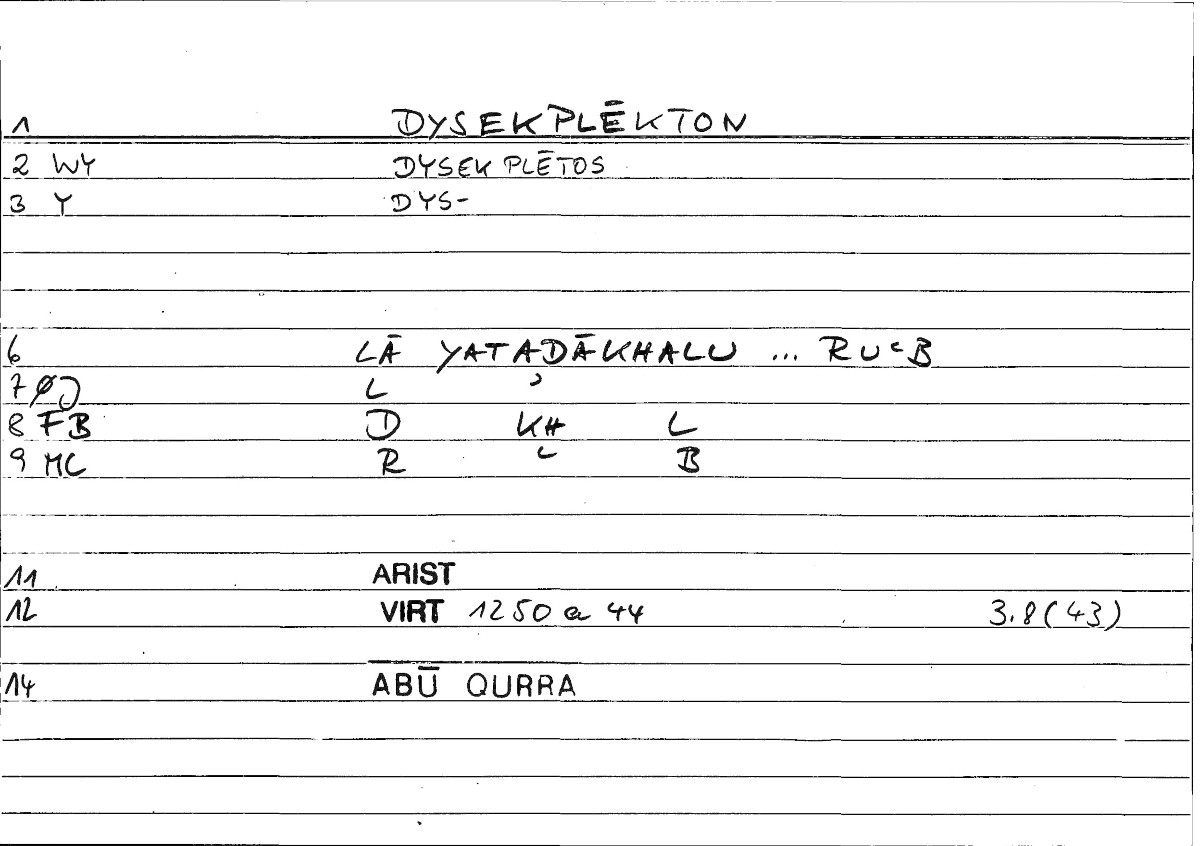 1 DYSEKPLĒKTON
2 WY DYSEKPLĒTOS
3 Y DYS-
6 LĀ YATADĀKHALU ... RUʿB
7 ØJ L ʾ
8 FB D KH L
9 MC R ʿ B
11 ARIST
12 VIRT 1250 a 44 3.8(43)
14 ABŪ QURRA